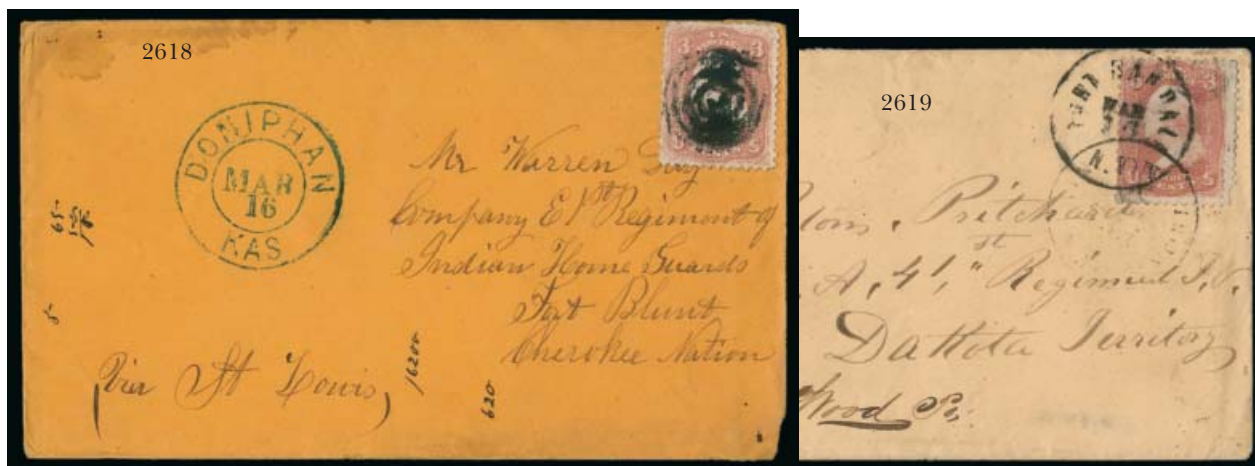 2618
3 3
DONIPHAN
MAR
16
KAS
Mr Warren
Company E 1st Regiment of
Indian Home Guards
Fort Blunt
Cherokee Nation
(Via St Louis)
1620
620
2619
FORT RANDALL
MAR
Pritchard
A, 41,st Regiment I, V.
Dakota Territory
Wood Co,